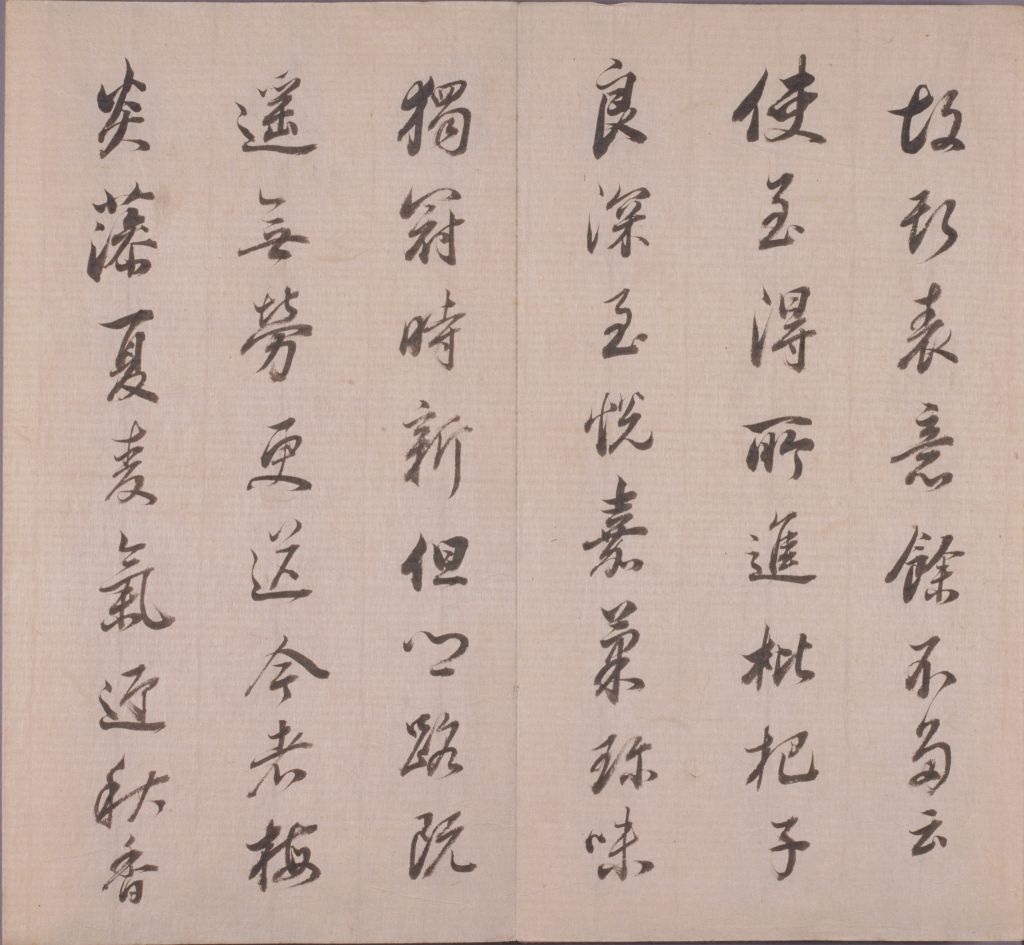 故斯表意餘不多云
使至得所進枇杷子
良深至悅嘉菓珎味
獨冠時新但川路既
遥無勞更送今者梅
炎藻夏麥氣迎秋香